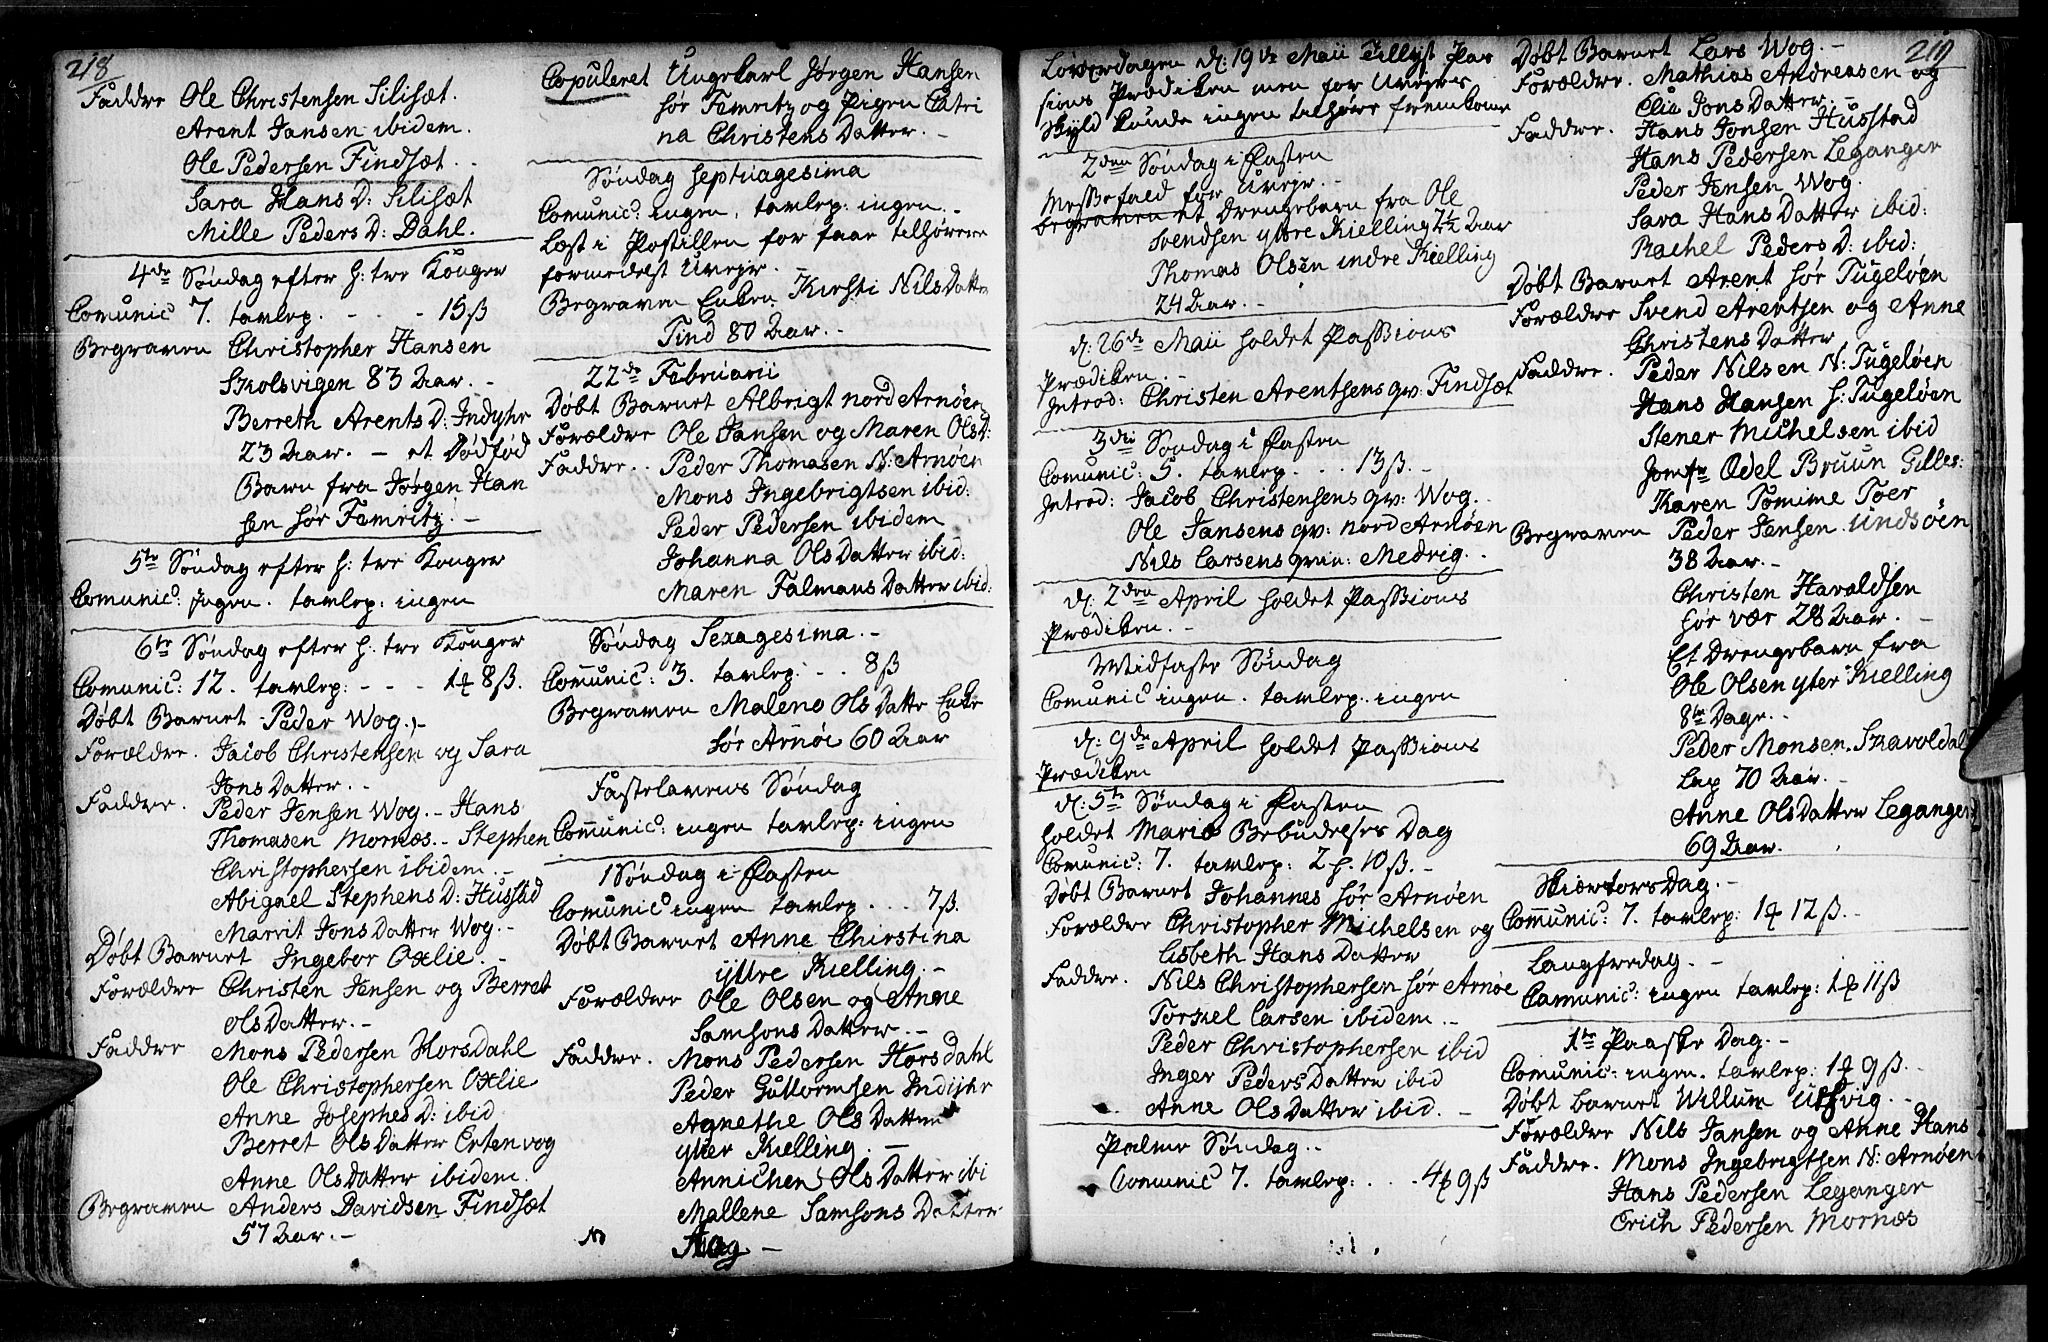 218
Faddre Ole Christensen Silisæt.
Arent Jansen ibidem.
Ole Pedersen Findsæt.
Sara Hans D: Silisæt
Mille Peders D: Dahl.
4de Søndag efter h: tre Konger
Comunic 7. tavlep. - - - 15 ß
Begraven Christopher Hansen
Skolsvigen 83 Aar. -
Berreth Arents D: Indyhr
23 Aar. - et Dødfød
Barn fra Jørgen Han
sen sør Femritz. -
5te Søndag efter h: tre Konger
Comunic: Ingen. tavlep: ingen
6te Søndag efter h: tre Konger
Comunic: 12. tavlep: - - - 8 ß.
Døbt Barnet Peder Wog. -
Forældre. Jacob Christensen og Sara
Jons Datter. -
Faddre. Peder Jensen Wog. - Hans
Thomasen Mornæs. - Stephen
Christophersen ibidem. -
Abigael Stephens D: Hustad
Marrit Jons Datter Wog. -
Døbt Barnet Ingebor Oxlie. -
Forældre Christen Jensen og Berret
Ols Datter. -
Faddre Mons Pedersen Horsdahl
Ole Christophersen Oxlie
Anne Josephs D: ibid
Berret Ols Datter Ertenvog
Anne Ols Datter ibidem.
Begraven Anders Davidsen Findsæt
57 Aar. -
Copuleret Ungekarl Jørgen Hansen
sør Femritz og Pigen Catri
na Christens Datter. -
Søndag Septuagesima
Comunic: ingen, tavlep: ingen. -
Læst i Postillen for faae tilhørere
formedelst Uvejr.
Begraven Enken Kirsti Nils Datter
Find 80 Aar. -
22de Februarii
Døbt Barnet Albrigt nord Arnøen
Forældre Ole Jansen og Maren Ols D:
Faddre. Peder Thomasen N: Arnøen
Mons Ingebrigtsen ibid:
Peder Pedersen ibidem
Johanna Ols Datter ibid:
Maren Falmans Datter ibid:
Søndag Sexagesima. -
Comunic: 3. tavlep: - . . 8 ß
Begraven Maleno Ols Datter Enke
sør Arnøe 60 Aar
Fastelavens Søndag
Comunic: ingen tavlep: ingen
1 Søndag i Fasten
Comunic ingen tavlep . . . 7 ß.
Døbt Barnet Anne Chirstina
ijttre Kielling. -
Forældre Ole Olsen og Anne
Samsons Datter. -
Faddre. Mons Pedersen Horsdahl
Peder Guttormsen Indijhr
Agnethe Ols Datter
ytter Kielling. -
Annichen Ols Datter ibi
Mallene Samsons Datter
Løverdagen d: 19de Maii tillyst Pas
sions Prædiken men for Uvejrs
skyld kunde ingen tilhøre fremkome
2den Søndag i Fasten
Messefald for Uvejr. -
begraven et Drengebarn fra Ole
Svendsen ytre Kielling 2½ Aar
Thomas Olsen indre Kielling
24 Aar. -
d: 26de Maii holdet Passions
Prædiken. -
Introd: Christen Arentsens qv: Findsæt
3die Søndag i Fasten
Comunic: 5. tavlep. . . 13 ß. -
Introd: Jacob Christensens qv: Wog. -
Ole Jansens qv: nord Arnøen
Nils Larsens qvin: Medvig. -
d: 2den April holdet Passions
Prædiken. -
Midfaste Søndag
Comunic ingen. tavlep. ingen
d: 9de April holdet Passions
Prædiken
d: 5te Søndag i Fasten
holdet Mariæ Bebudelses Dag
Comunic: 7. tavlep: 10 ß. -
Døbt Barnet Johannes sør Arnøen
Forældre Christopher Michelsen og
Lisbeth Hans Datter
Faddre. Nils Christophersen sør Arnøe
Torkel Larsen ibidem. -
Peder Christophersen ibid
Inger Peders Datter ibid
Anne Ols Datter ibid. -
Palme Søndag. -
Comunic 7. tavlep: . . . 9 ß
219
Døbt Barnet Lars Wog. -
Forældre. Mathias Andreasen og
Elie Jons Datter. -
Faddre. Hans Jonsen Husstad
Hans Pedersen Leganger
Peder Jensen Wog.
Sara Hans Datter ibid:
Rachel Peders D: ibid:
Døbt Barnet Arent sør Fugeløen
Forældre Svend Arentsen og Anne
Christens Datter
Faddre. Peder Nilsen N: Fugeløen
Hans Hansen S: Fugeløen
Stener Michelsen ibid
Jomfr Odel Bruun Gilles:
Karen Tomime Foer
Begraven Peder Jensen Undsøen
38 Aar. -
Christen Haraldsen
sør vær 28 Aar. -
Et Drengebarn fra
Ole Olsen yter Kielling
8te Dage. -
Peder Monsen Skavoldal
Lap 70 Aar. -
Anne Ols Datter Leganger
69 Aar.
Skiærtors Dag. -
Comunic: 7. tavlep: 12 ß. -
Langfredag. -
Comunic: ingen tavlep: 11 ß
1te Paaske Dag. -
Comunic: ingen. tavlep: 9 ß. -
Døbt barnet Willum
Forældre Nils Jansen og Anne Hans
Faddre. Mons Ingebrigtsen N: Arnøen
Hans Pedersen Leganger
Erich Pedersen Mornæs